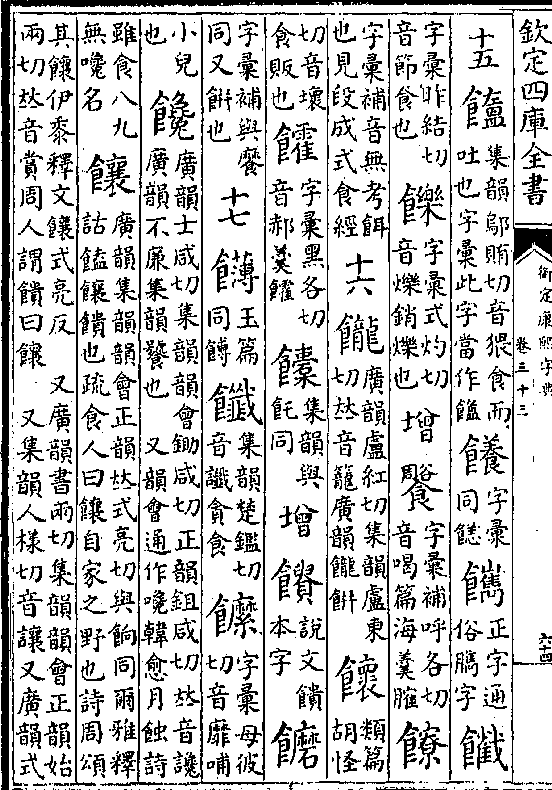 欽定四庫全書
御定康熙字典
卷三十三
六十四
十五 集韻鄔賄切音猥食而吐也字彙此字當作 字彙同 正字通俗臇字
字彙昨結切音節食也 字彙式灼切音爍銷爍也 增 字彙補呼各切音喝篇海羹臛
字彙補音無考餌也見段成式食經 十六 廣韻盧紅切集韻盧東切𠀤音籠廣韻 餅 類篇胡怪
切音壞食販也 字彙黑各切音郝羹 集韻與飥同 增 說文饙本字
字彙補與 同又餅也 十七 玉篇同餺 集韻楚鑑切音讖貪食 字彙母彼切音靡哺
小兒也 饞 廣韻士咸切集韻韻會鋤咸切正韻鉏咸切𠀤音讒廣韻不廉集韻饕也 又韻會通作嚵韓愈月蝕詩
雖食八九無嚵名 饟 廣韻集韻韻會正韻𠀤式亮切與餉同爾雅釋詁饁饟饋也疏食人曰饟自家之野也詩周頌
其饟伊黍釋文饟式亮反 又廣韻書兩切集韻韻會正韻始兩切𠀤音賞周人謂饋曰饟 又集韻人樣切音讓又廣韻式